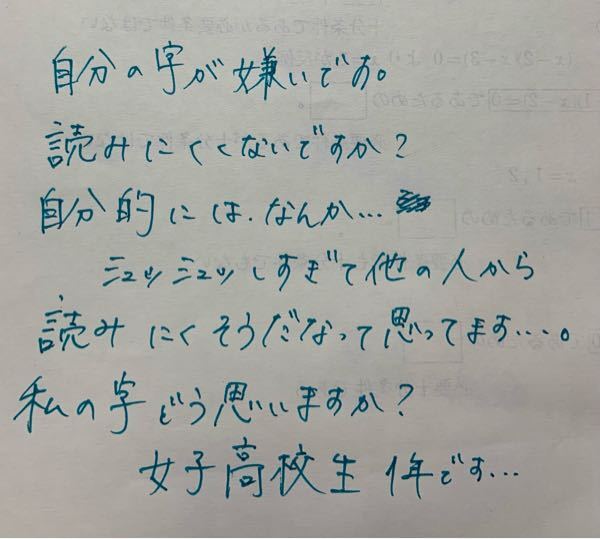 自分の字が嫌いです。
読みにくくないですか?
自分的には、なんか…
ミュッミュッしすぎて他の人から
読みにくそうだなって思ってます…。
私の字どう思いますか?
女子高校生 1年です…